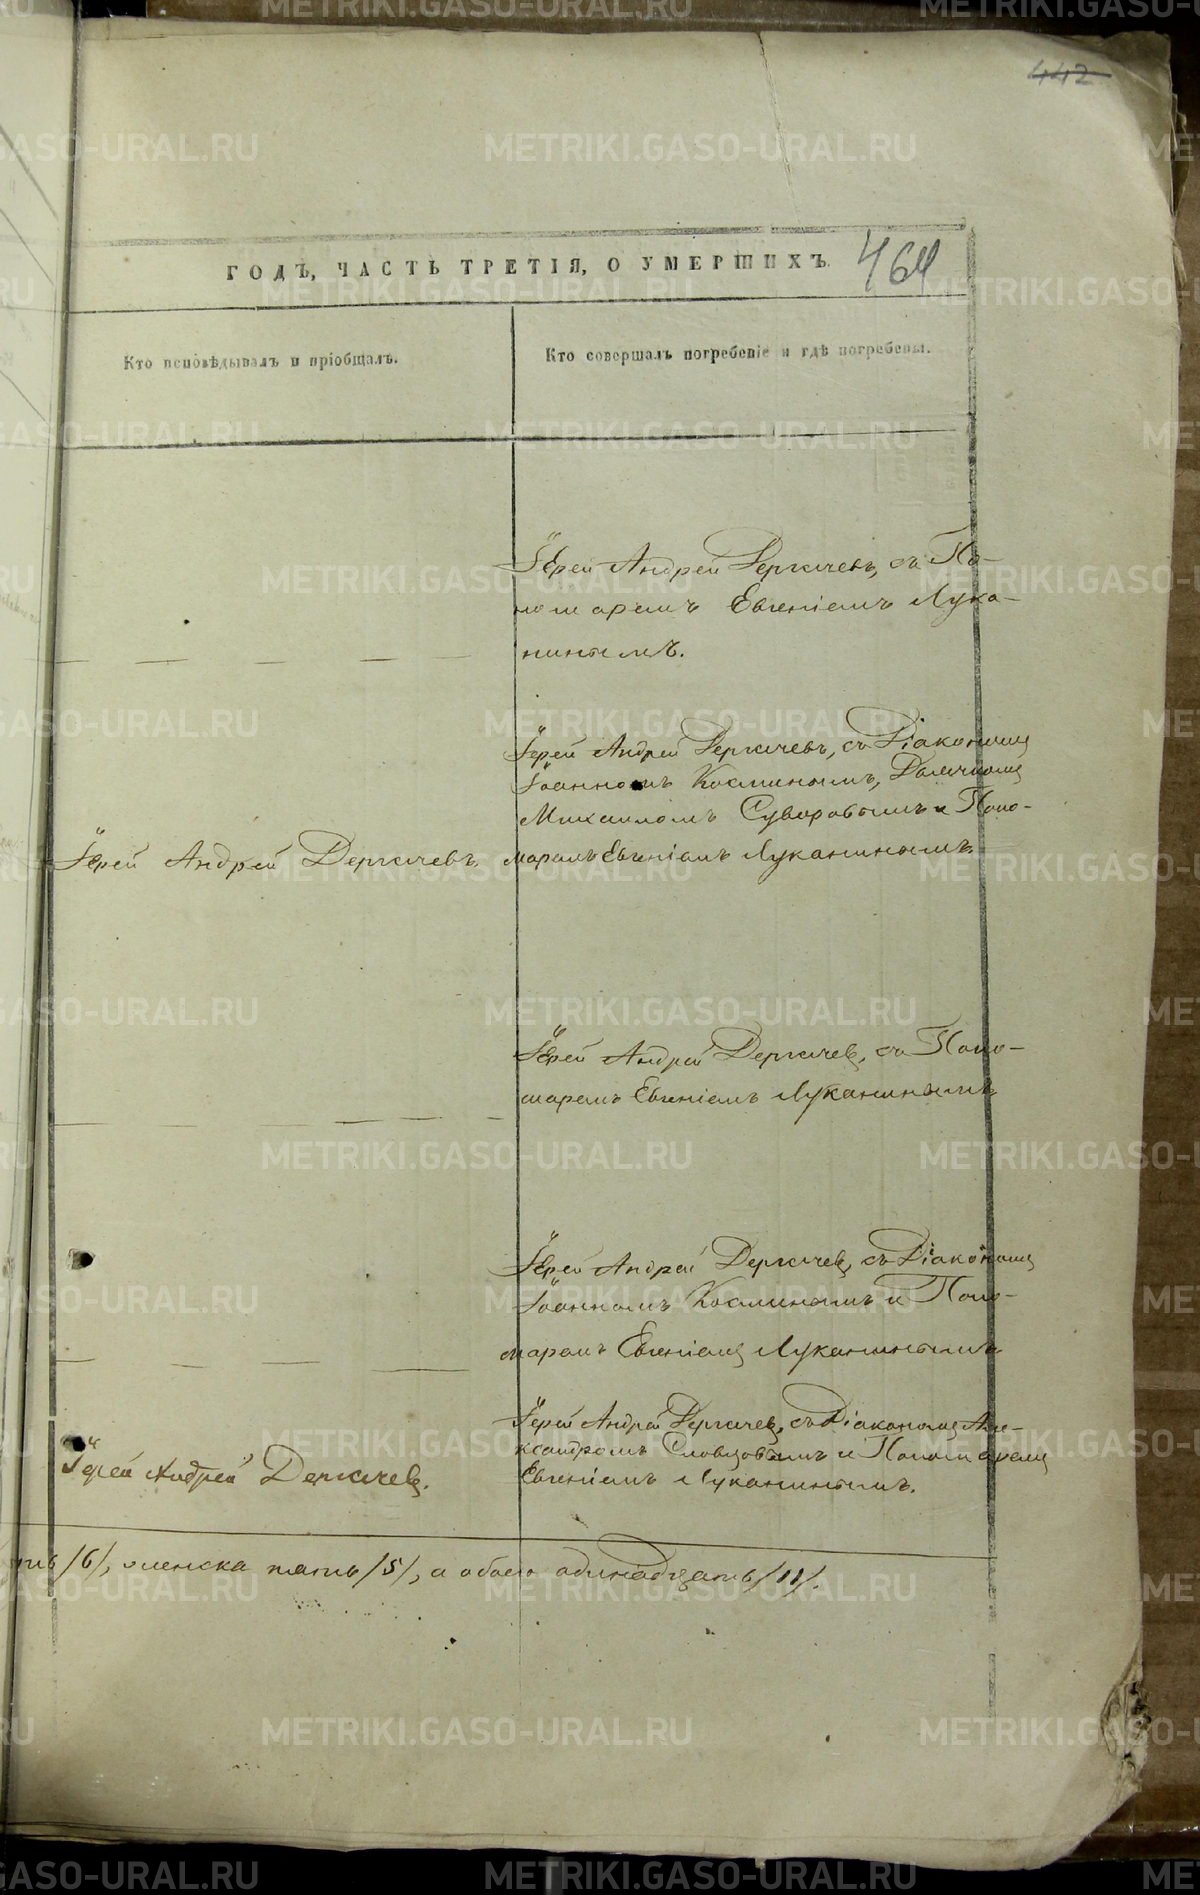 442
ГОДЪ, ЧАСТЬ ТРЕТІЯ, О УМЕРШИХЪ.
464
Кто исповѣдывалъ и пріобщалъ.
Кто совершалъ погребеніе и гдѣ погребены.
Іерей Андрей Дергачевъ, съ По-
номаремъ Евгеніемъ Лука-
нинымъ.
Іерей Андрей Дергачевъ, съ Діакономъ
Іоанномъ Косминымъ, Дьячкомъ
Михаиломъ Суворовымъ и Поно-
Іерей Андрей Дергачевъ
маремъ Евгеніемъ Луканинымъ
Іерей Андрей Дергачевъ, съ Поно-
маремъ Евгеніемъ Луканинымъ
Іерей Андрей Дергачевъ, съ Діакономъ
Іоанномъ Косминымъ и Поно-
маремъ Евгеніемъ Луканинымъ
Іерей Андрей Дергачевъ, съ Діакономъ Але-
ксандромъ Словцовымъ и Пономаремъ
Іерей Андрей Дергачевъ.
Евгеніемъ Луканинымъ.
/6/, женска пять /5/, а обоего одинадцать /11/.
METRIKI.GASO-URAL.RU